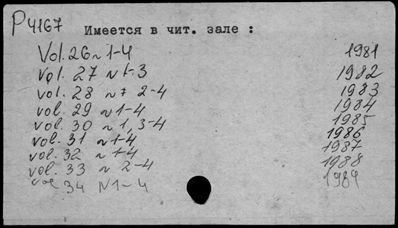 P4167
Имеется в чит. зале :
Vol. 26 N 1-4 1981
vol. 27 N 1-3 1982
vol. 28 N 2-4 1983
vol. 29 N 1-4 1984
vol. 30 N 1, 3-4 1985
vol. 31 N 1-4 1986
vol. 32 N 1-4 1987
vol. 33 N 2-4 1988
vol. 34 N 1-4 1989